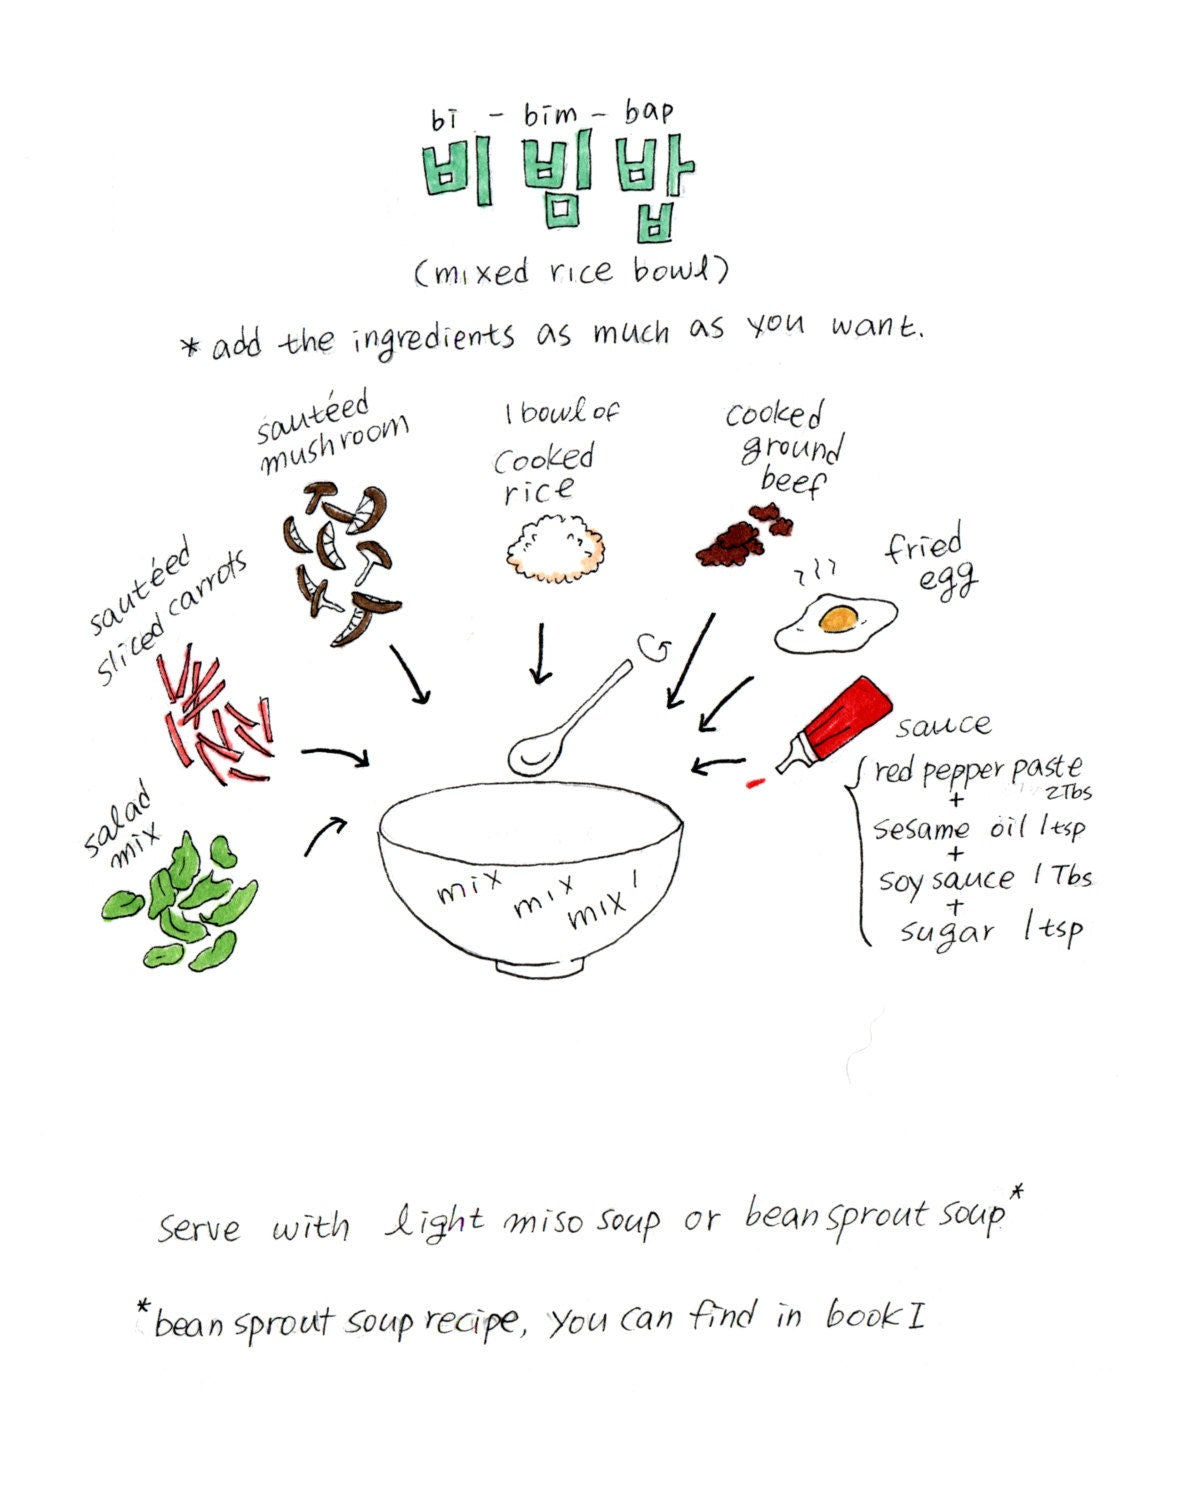 bī - bīm - bap
비빔밥
(mixed rice bowl)
* add the ingredients as much as you want.
sautéed
mushroom
1 bowl of
cooked
rice
cooked
ground
beef
fried
egg
sautéed
sliced carrots
salad
mix
sauce
red pepper paste
2Tbs
+
sesame oil 1tsp
+
soy sauce 1 Tbs
+
sugar 1tsp
mix
mix
mix!
serve with light miso soup or bean sprout soup*
*bean sprout soup recipe, you can find in book I